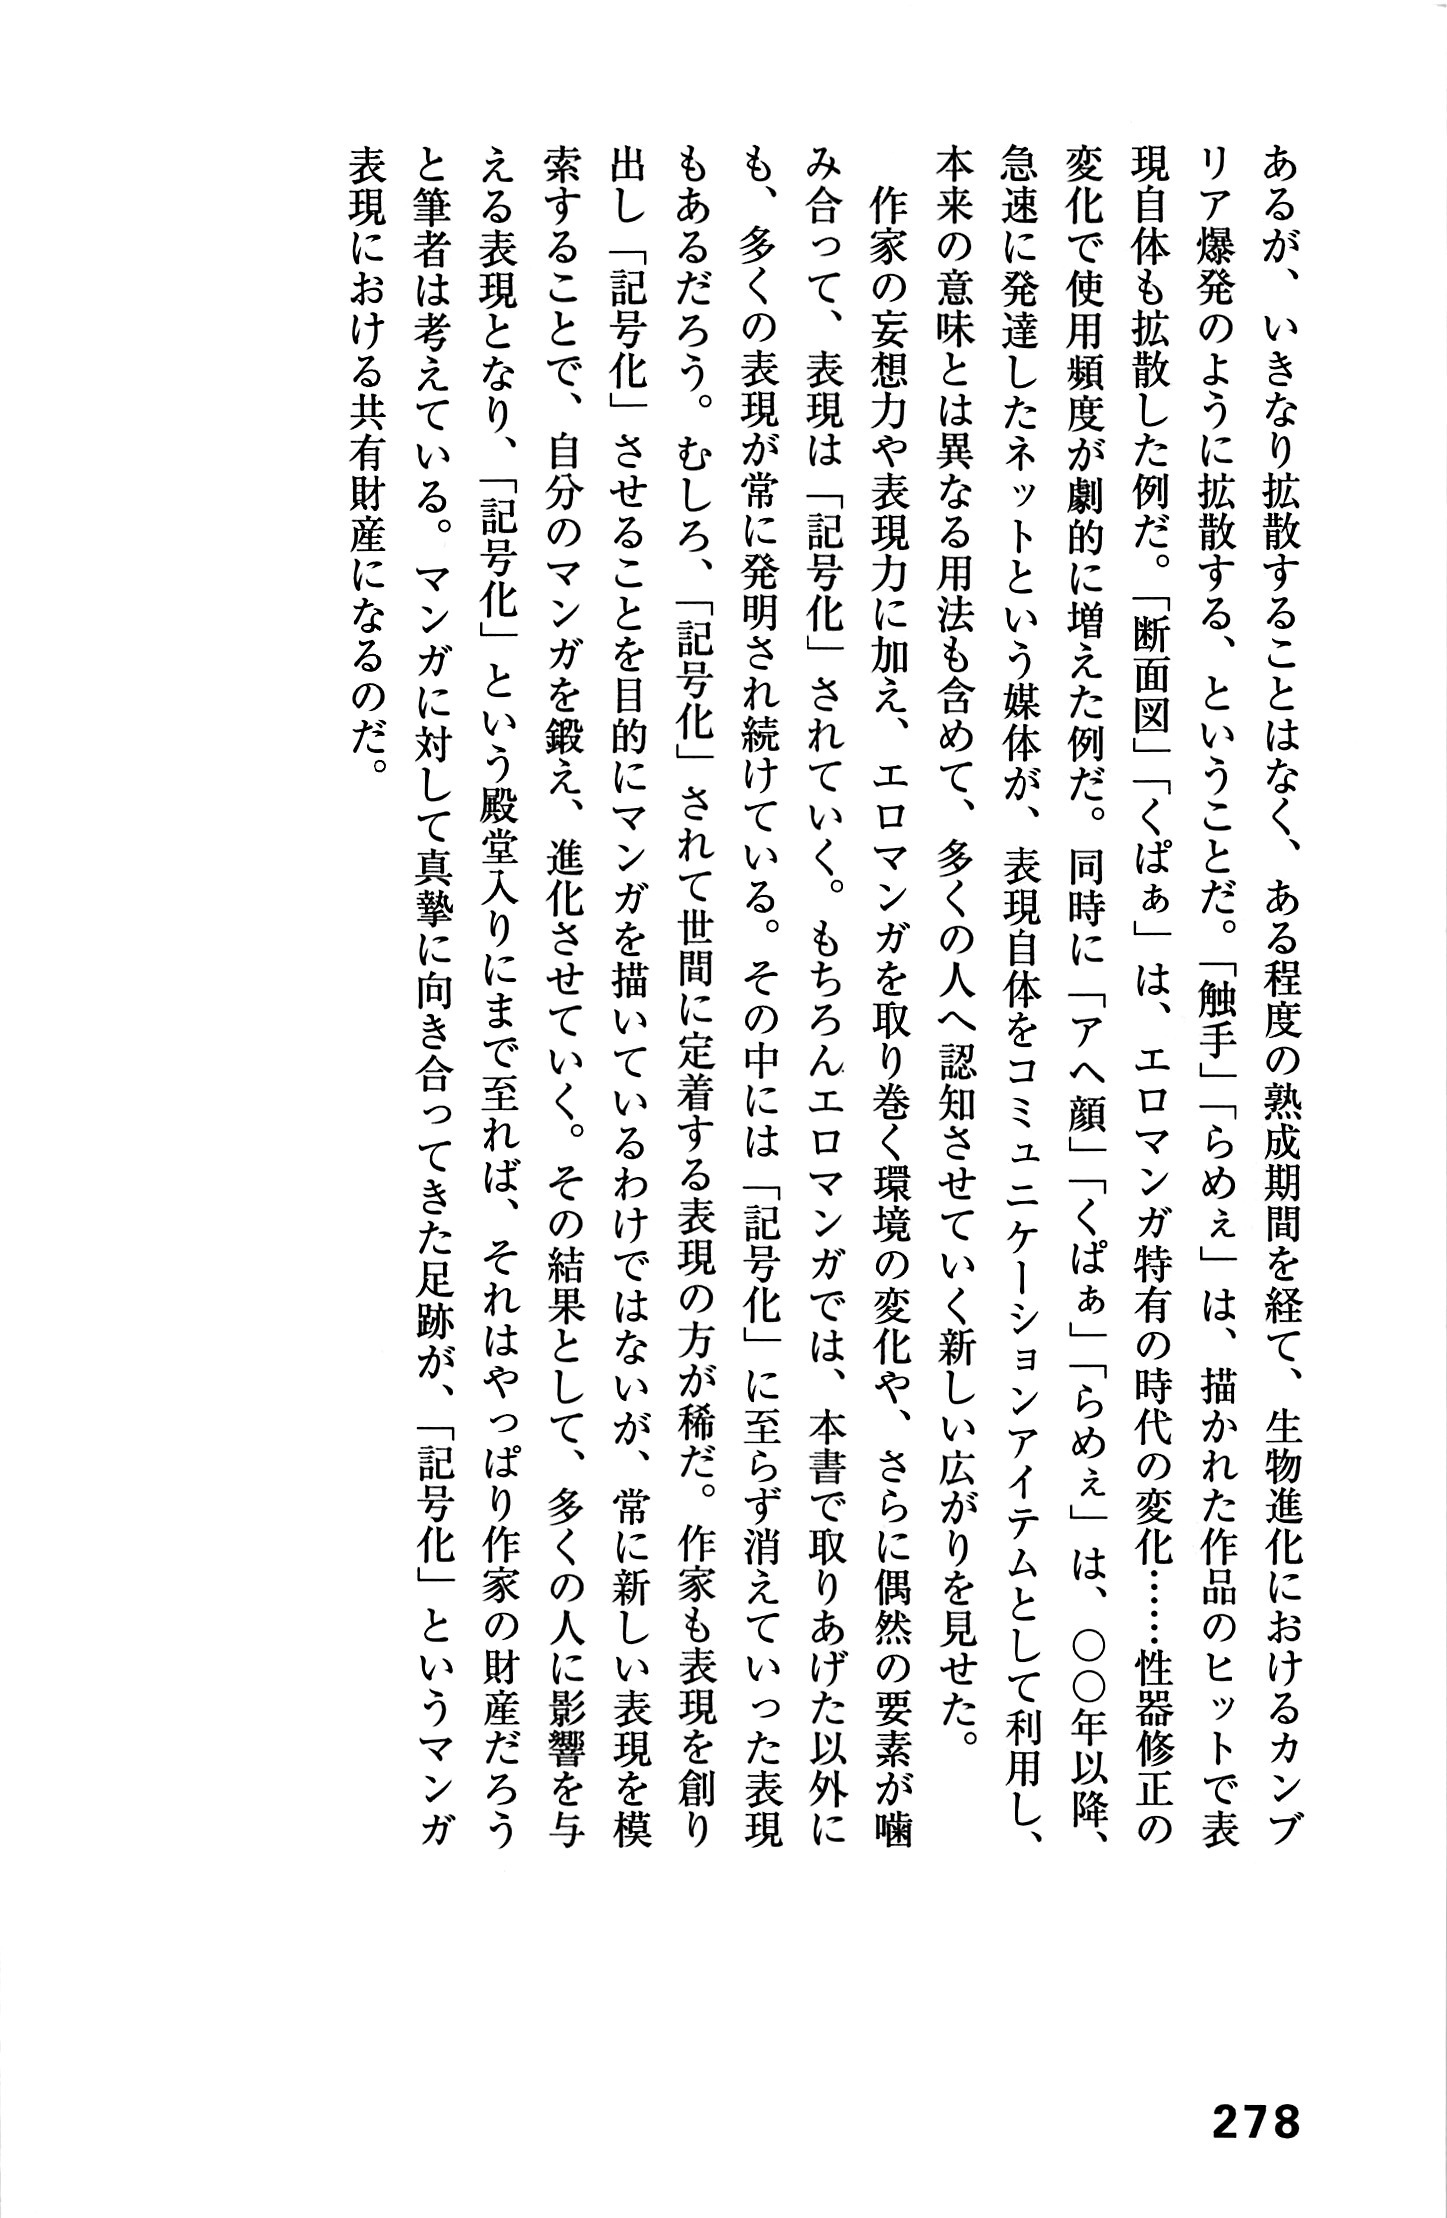 あるが、いきなり拡散することはなく、ある程度の熟成期間を経て、生物進化におけるカンブ
リア爆発のように拡散する、ということだ。「触手」「らめぇ」は、描かれた作品のヒットで表
現自体も拡散した例だ。「断面図」「くぱぁ」は、エロマンガ特有の時代の変化……性器修正の
変化で使用頻度が劇的に増えた例だ。同時に「アヘ顔」「くぱぁ」「らめぇ」は、〇〇年以降、
急速に発達したネットという媒体が、表現自体をコミュニケーションアイテムとして利用し、
本来の意味とは異なる用法も含めて、多くの人へ認知させていく新しい広がりを見せた。
　作家の妄想力や表現力に加え、エロマンガを取り巻く環境の変化や、さらに偶然の要素が噛
み合って、表現は「記号化」されていく。もちろんエロマンガでは、本書で取りあげた以外に
も、多くの表現が常に発明され続けている。その中には「記号化」に至らず消えていった表現
もあるだろう。むしろ、「記号化」されて世間に定着する表現の方が稀だ。作家も表現を創り
出し「記号化」させることを目的にマンガを描いているわけではないが、常に新しい表現を模
索することで、自分のマンガを鍛え、進化させていく。その結果として、多くの人に影響を与
える表現となり、「記号化」という殿堂入りにまで至れば、それはやっぱり作家の財産だろう
と筆者は考えている。マンガに対して真摯に向き合ってきた足跡が、「記号化」というマンガ
表現における共有財産になるのだ。
278